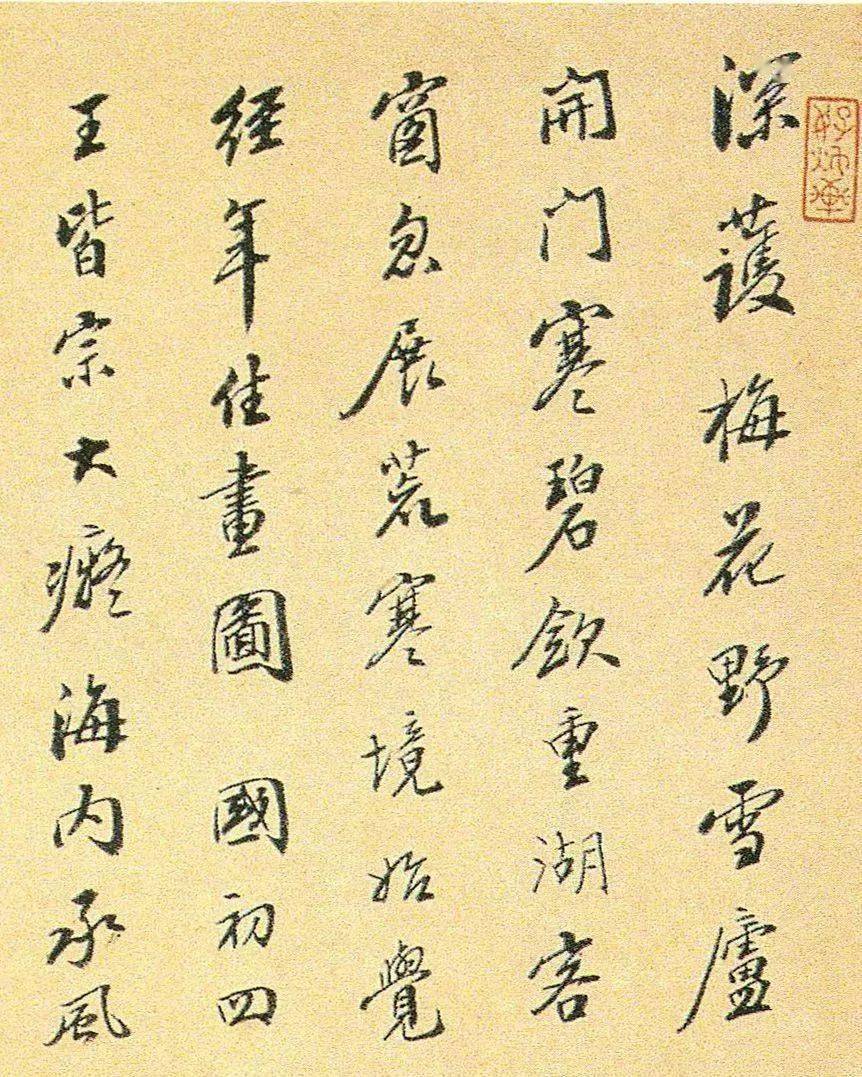 深護梅花野雪廬
開门寒碧飲重湖客
窗忽展荒寒境始覺
經年住畫圖 國初四
王皆宗大癡海内承風